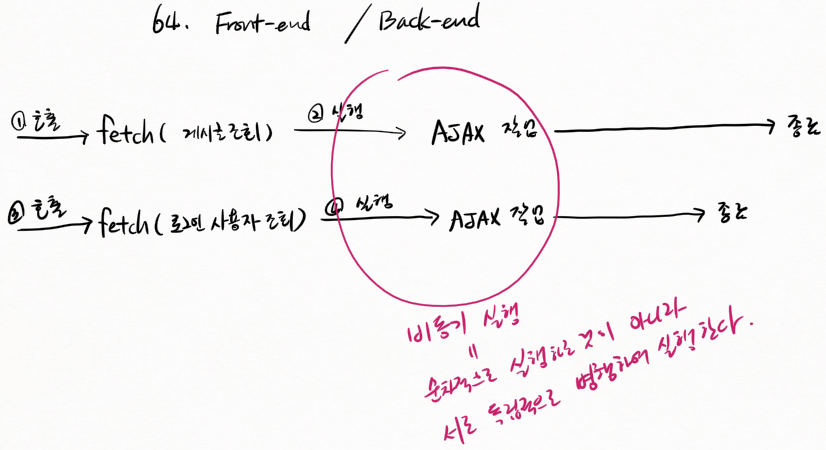 64. Front-end / Back-end
① 호출 fetch( 게시글 조회) ② 실행 AJAX 작업 종료
③ 호출 fetch( 로그인 사용자 조회) ④ 실행 AJAX 작업 종료
비동기 실행
=
순차적으로 실행하는 것이 아니라
서로 독립적으로 병행하여 실행한다.